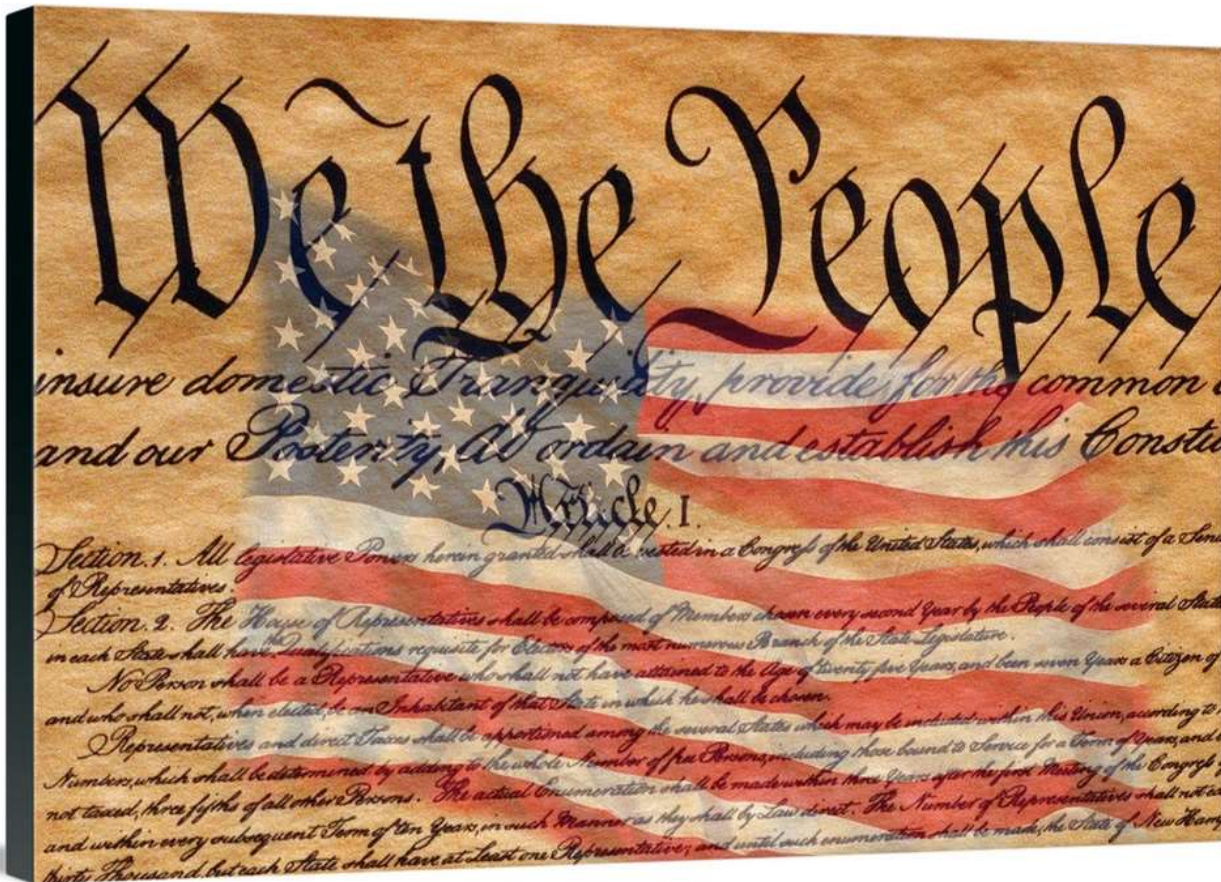 We the People
insure domestic Tranquility, provide for the common
and our Posterity, do ordain and establish this Constitu
Article. I.
Section. 1. All legislative Powers herein granted shall be vested in a Congress of the United States, which shall consist of a Sen
of Representatives.
Section. 2. The House of Representatives shall be composed of Members chosen every second Year by the People of the several States
in each State shall have the Qualifications requisite for Electors of the most numerous Branch of the State Legislature.
No Person shall be a Representative who shall not have attained to the Age of twenty five Years, and been seven Years a Citizen of
and who shall not, when elected, be an Inhabitant of that State in which he shall be chosen.
Representatives and direct Taxes shall be apportioned among the several States which may be included within this Union, according to
Numbers, which shall be determined by adding to the whole Number of free Persons, including those bound to Service for a Term of Years, and
not taxed, three fifths of all other Persons. The actual Enumeration shall be made within three Years after the first Meeting of the Congress
and within every subsequent Term of ten Years, in such Manner as they shall by Law direct. The Number of Representatives shall not
thirty Thousand, but each State shall have at Least one Representative; and until such enumeration shall be made, the State of New Hamp